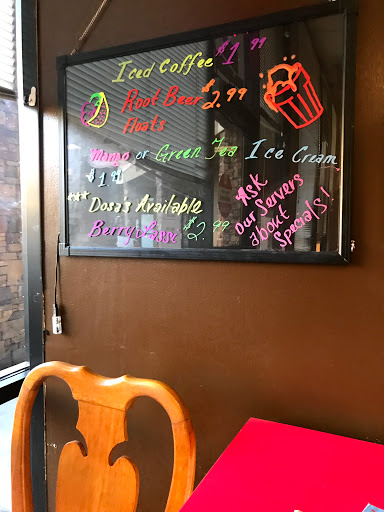 Iced Coffee $1.99
Root Beer $2.99
floats
Mango or Green Tea Ice Cream
$1.99
*** Dosa's Available
Berry Lassi $2.99
Ask
our Servers
about
Specials!